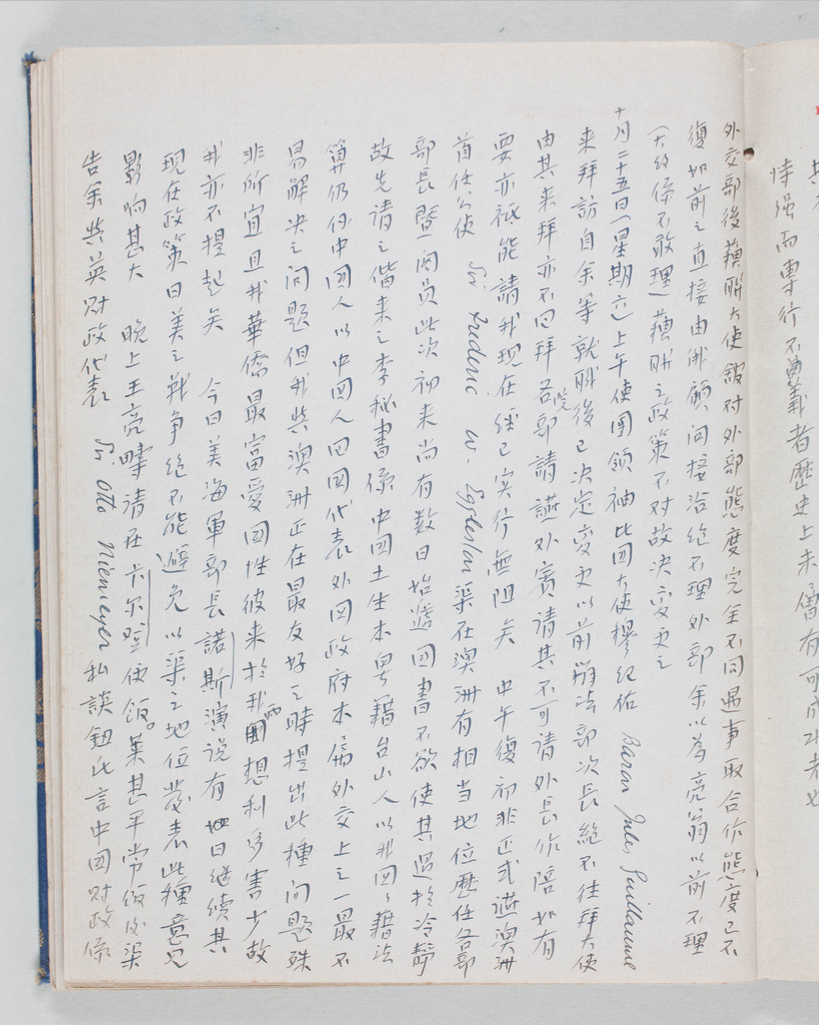 恃强而專行不義者歷史上未曾有可成功者也
外交部後蘇聯大使館对外部態度完全不同遇事取合作態度已不
復如前之直接由俄顧问接洽絕不理外部余以為亮翁以前不理
(大约係不敢理)蘇聯之政策不对故决变更之
十月二十五日(星期六)上午使團領袖比国大使穆紀佑 Baron Jules Guillaume
来拜訪自余等就職後已决定变更以前辦法部次長絕不往拜大使
由其来拜亦不回拜各院部請讌外賓請其不可請外長作陪如有
要亦祇能請我现在经已实行無阻矣 中午復初非正式讌澳洲
首任公使 Sir Frederic W. Eggleston 渠在澳洲有相当地位歷任各部
部長暨閣员此次初来尚有数日始遞国書不欲使其過於冷靜
故先請之偕来之李秘書係中国土生本粤籍台山人以我国国籍法
算仍份中国人以中国人回国代表外国政府本属外交上之一最不
易解决之问题但我與澳洲正在最友好之時提出此種问题殊
非所宜且我華僑最富愛国性彼来於我国想利多害少故
我亦不提起矣 今日美海軍部長諾斯演说有如日继续其
现在政策日美之戰争绝不能避免以渠之地位發表此種意见
影响甚大 晚上王亮疇請在卡尔登便飯。菜甚平常饭後渠
告余與英財政代表 Sir Otto Niemeyer 私談鈕此言中国財政係